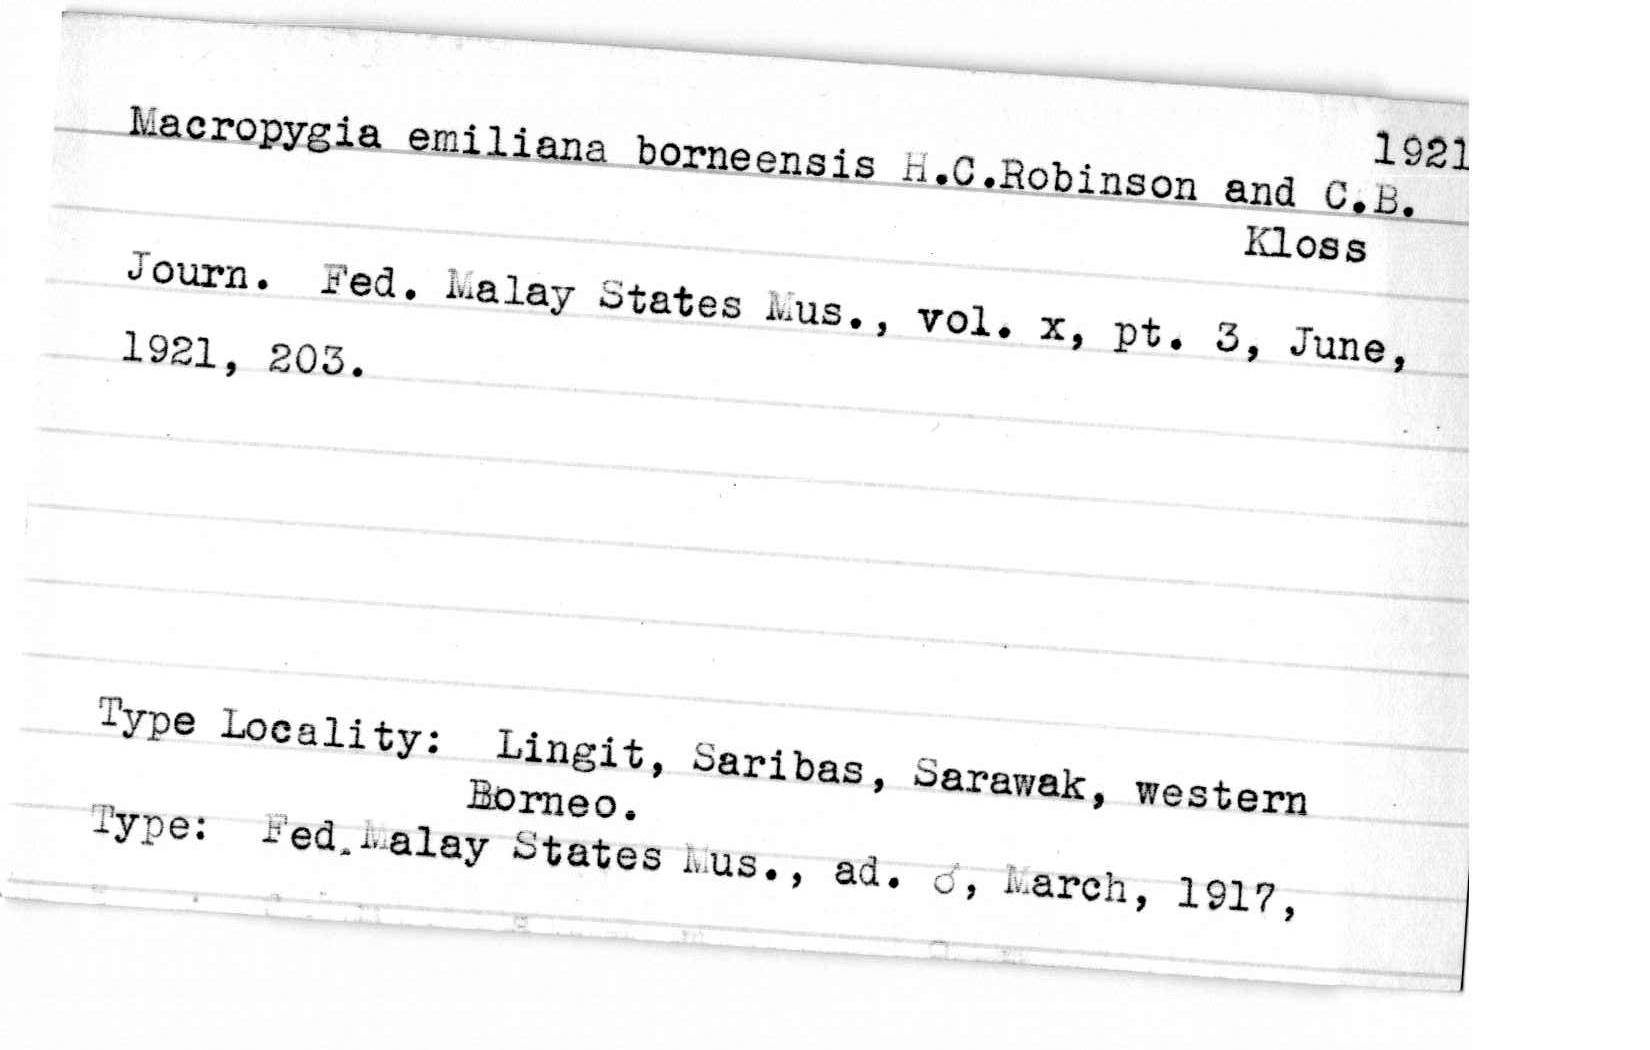 1921
Macropygia emiliana borneensis H.C.Robinson and C.B.
Kloss
Journ. Fed. Malay States Mus., vol. x, pt. 3, June,
1921, 203.
Type Locality: Lingit, Saribas, Sarawak, western
Borneo.
Type: Fed. Malay States Mus., ad. ♂, March, 1917,